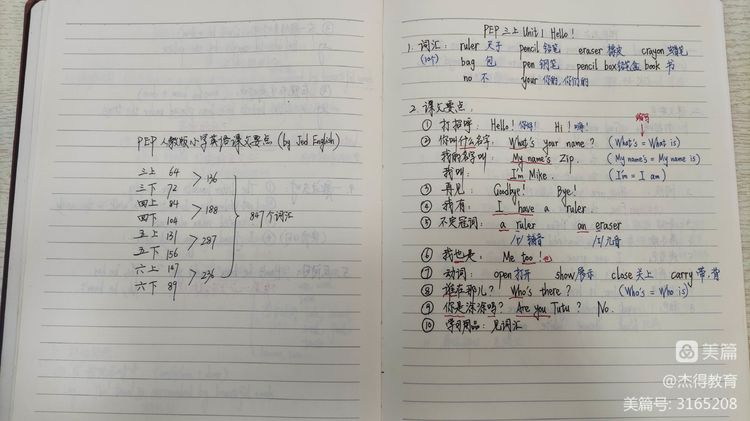 PEP 人教版小学英语课文要点 (by Jed English)
三上 64
三下 72
> 136
四上 84
四下 104
> 188
五上 131
五下 156
> 287
六上 147
六下 89
> 236
847个词汇
PEP 三上 Unit 1 Hello!
1. 词汇: ruler 尺子 pencil 铅笔 eraser 橡皮 crayon 蜡笔
(10个) bag 包 pen 钢笔 pencil box 铅笔盒 book 书
no 不 your 你的,你们的
2. 课文要点.
缩写
① 打招呼: Hello! 你好! Hi! 嗨!
② 你叫什么名字: What's your name? (What's = What is)
我的名字叫: My name's Zip. (My name's = My name is)
我叫: I'm Mike. (I'm = I am)
③ 再见: Goodbye! Bye!
④ 我有: I have a ruler.
⑤ 不定冠词: a ruler an eraser
/r/ 辅音 /ɪ/ 元音
⑥ 我也是: Me too! 也
⑦ 动词: open 打开 show 展示 close 关上 carry 带,背
⑧ 谁在那儿? Who's there? (Who's = Who is)
⑨ 你是涂涂吗? Are you Tutu? No.
⑩ 学习用品: 见词汇
美篇
@杰得教育
美篇号: 3165208